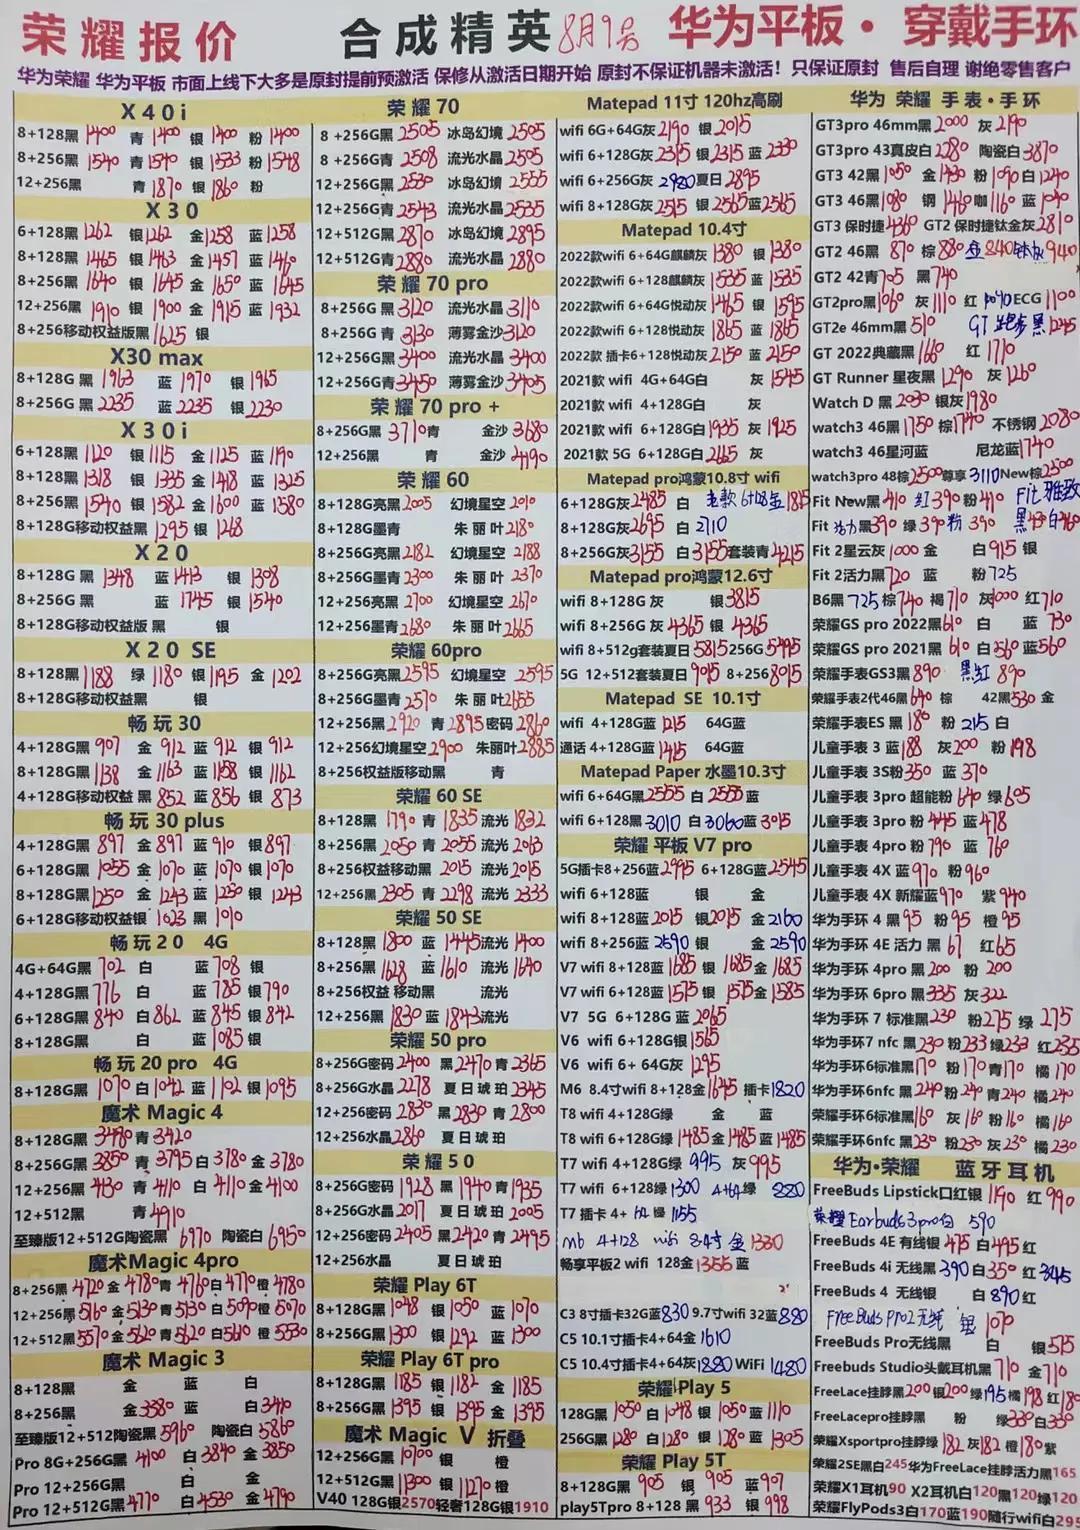 荣耀报价 合成精英 8月9号 华为平板·穿戴手环
华为荣耀 华为平板 市面上线下大多是原封提前预激活 保修从激活日期开始 原封不保证机器未激活！只保证原封 售后自理 谢绝零售客户
X40i
8+128黑1400 青1400 银1400 粉1400
8+256黑1540 青1540 银1533 粉1548
12+256黑 青1870 银1860 粉
X30
6+128黑1262 银1262 金1258 蓝1258
8+128黑1465 银1463 金1457 蓝1460
8+256黑1640 银1645 金1650 蓝1645
12+256黑1910 银1900 金1915 蓝1932
8+256移动权益版黑1625 银
X30 max
8+128G 黑1963 蓝1970 银1965
8+256G 黑2235 蓝2235 银2230
X30i
6+128黑1120 银1115 金1125 蓝1190
8+128黑1318 银1335 金1418 蓝1325
8+256黑1540 银1582 金1600 蓝1580
8+128G移动权益黑1295 银1268
X20
8+128G 黑1348 蓝1413 银1398
8+256G 黑 蓝1745 银1540
8+128G移动权益版 黑 银
X20 SE
8+128黑1188 绿1180 银1195 金1202
8+128G移动权益黑 银
畅玩30
4+128G黑907 金912 蓝912 银912
8+128G黑1138 金1163 蓝1158 银1162
4+128G移动权益 黑852 蓝856 银873
畅玩30 plus
4+128G黑897 金897 蓝910 银897
6+128G黑1055 金1070 蓝1070 银1070
8+128G黑1250 金1243 蓝1230 银1243
6+128G移动权益银1023 黑1010
畅玩20 4G
4G+64G黑702 白 蓝708 银
4+128G黑776 白 蓝785 银790
6+128G黑840 白862 蓝845 银842
8+128G黑 白 蓝1085 银
畅玩20 pro 4G
8+128G黑1070 白1042 蓝1102 银1095
魔术 Magic 4
8+128G黑3470 青3420
8+256G黑3850 青3795 白3780 金3780
12+256黑4130 青4110 白4110 金4100
12+512黑 青4910
至臻版12+512G陶瓷黑6970 陶瓷白6950
魔术Magic 4pro
8+256黑4720 金4780 青4760 白4770 橙4780
12+256黑5160 金5130 青5130 白5090 橙5070
12+512黑5570 金5620 青5620 白5610 橙5530
魔术 Magic 3
8+128黑 金 蓝 白
8+256黑 金3580 蓝 白3440
至臻版12+512陶瓷黑5960 陶瓷白5860
Pro 8G+256G黑4100 白3840 金3850
Pro 12+256G黑 白 金
Pro 12+512G黑4770 白4530 金4790
荣耀 70
8 +256G黑2505 冰岛幻境2505
8 +256G青2508 流光水晶2505
12+256G黑2530 冰岛幻境2555
12+256G青2543 流光水晶2535
12+512G黑2870 冰岛幻境2895
12+512G青2880 流光水晶2880
荣耀 70 pro
8+256G黑3120 流光水晶3110
8+256G青3130 薄雾金沙3120
12+256G黑3400 流光水晶3400
12+256G青3450 薄雾金沙3405
荣耀 70 pro +
8+256G黑3710 青 金沙3680
12+256黑 青 金沙4190
荣耀 60
8+128G亮黑2005 幻境星空2010
8+128G墨青 朱丽叶2180
8+256G亮黑2182 幻境星空2188
8+256G墨青2300 朱丽叶2370
12+256亮黑2700 幻境星空2670
12+256墨青2680 朱丽叶2665
荣耀60pro
8+256G亮黑2595 幻境星空2595
8+256G墨青2570 朱丽叶2655
12+256黑2920 青2895 密码2860
12+256幻境星空2900 朱丽叶2885
8+256权益版移动黑 青
荣耀 60 SE
8+128黑1790 青1835 流光1832
8+256黑2050 青2055 流光2013
8+256权益移动黑2015 流光2015
12+256黑2305 青2298 流光2333
荣耀 50 SE
8+128黑1800 蓝1445 流光1400
8+256黑1628 蓝1610 流光1640
8+256权益 移动黑 流光
12+256黑1830 蓝1843 流光
荣耀 50 pro
8+256G密码2400 黑2470 青2365
8+256G水晶2278 夏日琥珀2345
12+256密码2830 黑2830 青2800
12+256水晶2860 夏日琥珀
荣耀 50
8+256G密码1928 黑1940 青1935
8+256G水晶2017 夏日琥珀2005
12+256密码2405 黑2420 青2495
12+256水晶 夏日琥珀
荣耀 Play 6T
8+128G黑1048 银1050 蓝1070
8+256G黑1300 银1292 蓝1300
荣耀 Play 6T pro
8+128G黑1185 银1182 金1185
8+256G黑1395 银1395 金1395
魔术 Magic V 折叠
12+256G黑10700 银 橙
12+512G黑11300 银11270 橙
V40 128G银2570 轻奢128G银1910
Matepad 11寸 120hz高刷
wifi 6G+64G灰2190 银2015
wifi 6+128G灰2315 银2315 蓝2330
wifi 6+256G灰2920 夏日2895
wifi 8+128G灰2515 银2565 蓝2565
Matepad 10.4寸
2022款wifi 6+64G麒麟灰1380 银1380
2022款wifi 6+128麒麟灰1535 蓝1535
2022款wifi 6+64G悦动灰1465 银1595
2022款wifi 6+128悦动灰1865 蓝1865
2022款 插卡6+128悦动灰2150 蓝2150
2021款 wifi 4G+64G白 灰1545
2021款 wifi 4+128G白 灰
2021款 wifi 6+128G白1935 灰1925
2021款 5G 6+128G白2665 灰
Matepad pro鸿蒙10.8寸 wifi
6+128G灰2485 白 老款6+128金1815
8+128G灰2695 白2710
8+256G灰3155 白3155 套装青4215
Matepad pro鸿蒙12.6寸
wifi 8+128G 灰 银3815
wifi 8+256G 灰4365 银4365
wifi 8+512g套装夏日5815 256G5495
5G 12+512套装夏日9015 8+256 8015
Matepad SE 10.1寸
wifi 4+128G蓝1215 64G蓝
通话 4+128G蓝1415 64G蓝
Matepad Paper 水墨10.3寸
wifi 6+64G黑2555 白2555 蓝
wifi 6+128黑3010 白3060 蓝3015
荣耀 平板 V7 pro
5G插卡8+256蓝2995 6+128G蓝2545
wifi 6+128蓝 银 金
wifi 8+128蓝2015 银2015 金2160
wifi 8+256蓝2590 银 金2590
V7 wifi 8+128蓝1685 银1685 金1685
V7 wifi 6+128蓝1575 银1575 金1585
V7 5G 6+128G 蓝2065
V6 wifi 6+128G银1565
V6 wifi 6+ 64G灰1295
M6 8.4寸wifi 8+128金1645 插卡1820
T8 wifi 4+128G绿 金 蓝
T8 wifi 6+128G绿1485 金1485 蓝1485
T7 wifi 4+128G绿995 灰995
T7 wifi 6+128绿1300 4+64绿880
T7 插卡 4+ 64 绿1155
M6 4+128 wifi 8.4寸 金1330
畅享平板2 wifi 128金1355 蓝
C3 8寸插卡32G蓝830 9.7寸wifi 32蓝880
C5 10.1寸插卡4+64金1610
C5 10.4寸插卡4+64灰1880 WiFi 1480
荣耀Play 5
128G黑1050 白1048 银1050 蓝1110
256G黑1280 白1280 银1280 蓝1305
荣耀 Play 5T
8+128G黑905 银905 蓝907
play5Tpro 8+128 黑933 银998
华为 荣耀 手表·手环
GT3pro 46mm黑2000 灰2190
GT3pro 43真皮白2280 陶瓷白3870
GT3 42黑1050 金1430 粉1090 白1240
GT3 46黑1080 钢1460 咖1160 蓝1040
GT3 保时捷4360 GT2 保时捷钛金灰2810
GT2 46黑870 棕880 金840 钛灰940
GT2 42青705 黑740
GT2pro黑1060 灰1110 红1040 ECG1100
GT2e 46mm黑510 GT跑步黑1245
GT 2022典藏黑1660 红1710
GT Runner 星夜黑1290 灰1260
Watch D 黑2030 银灰1980
watch3 46黑1750 棕1740 不锈钢2080
watch3 46星河蓝 尼龙蓝1740
watch3pro 48棕2500 尊享3110 New棕2500
Fit New黑410 红390 粉410 Fit雅致
Fit 活力黑390 绿390 粉390 黑430 白460
Fit 2星云灰1000 金 白915 银
Fit 2活力黑720 蓝 粉725
B6黑725 棕740 褐710 灰1000 红710
荣耀GS pro 2022黑610 白 蓝730
荣耀GS pro 2021黑610 白560 蓝560
荣耀手表GS3黑890 黑红890
荣耀手表2代46黑640 棕 42黑530 金
荣耀手表ES 黑180 粉215 白
儿童手表 3 蓝188 灰200 粉198
儿童手表 3S粉350 蓝370
儿童手表 3pro 超能粉640 绿605
儿童手表 3pro 粉445 蓝478
儿童手表 4pro 粉790 蓝760
儿童手表 4X 蓝970 粉960
儿童手表 4X 新耀蓝970 紫940
华为手环 4 黑95 粉95 橙95
华为手环 4E 活力 黑67 红65
华为手环 4pro 黑200 粉200
华为手环 6pro 黑335 灰322
华为手环 7 标准黑230 粉275 绿275
华为手环7 nfc 黑230 粉233 绿233 红235
华为手环6标准黑170 粉170 青170 橘170
华为手环6nfc 黑240 粉240 青240 橘240
荣耀手环6标准黑160 灰160 粉160 橘160
荣耀手环6nfc 黑230 粉230 灰230 橘230
华为·荣耀 蓝牙耳机
FreeBuds Lipstick口红银1190 红990
荣耀Earbuds3pro白 590
FreeBuds 4E 有线银475 白495 红
FreeBuds 4i 无线黑390 白350 红345
FreeBuds 4 无线银 白890 红
FreeBuds Pro2无线 银1070
FreeBuds Pro无线黑 白 银575
Freebuds Studio头戴耳机黑710 金710
FreeLace挂脖黑200 银200 绿195 橘198 红180
FreeLacepro挂脖黑 粉 绿330 白330
荣耀Xsportpro挂脖绿182 灰182 橙180 紫
荣耀2SE黑白245 华为FreeLace挂脖活力黑165
荣耀X1耳机90 X2耳机白120 黑120 绿120
荣耀FlyPods3白170 蓝190 随行wifi白295